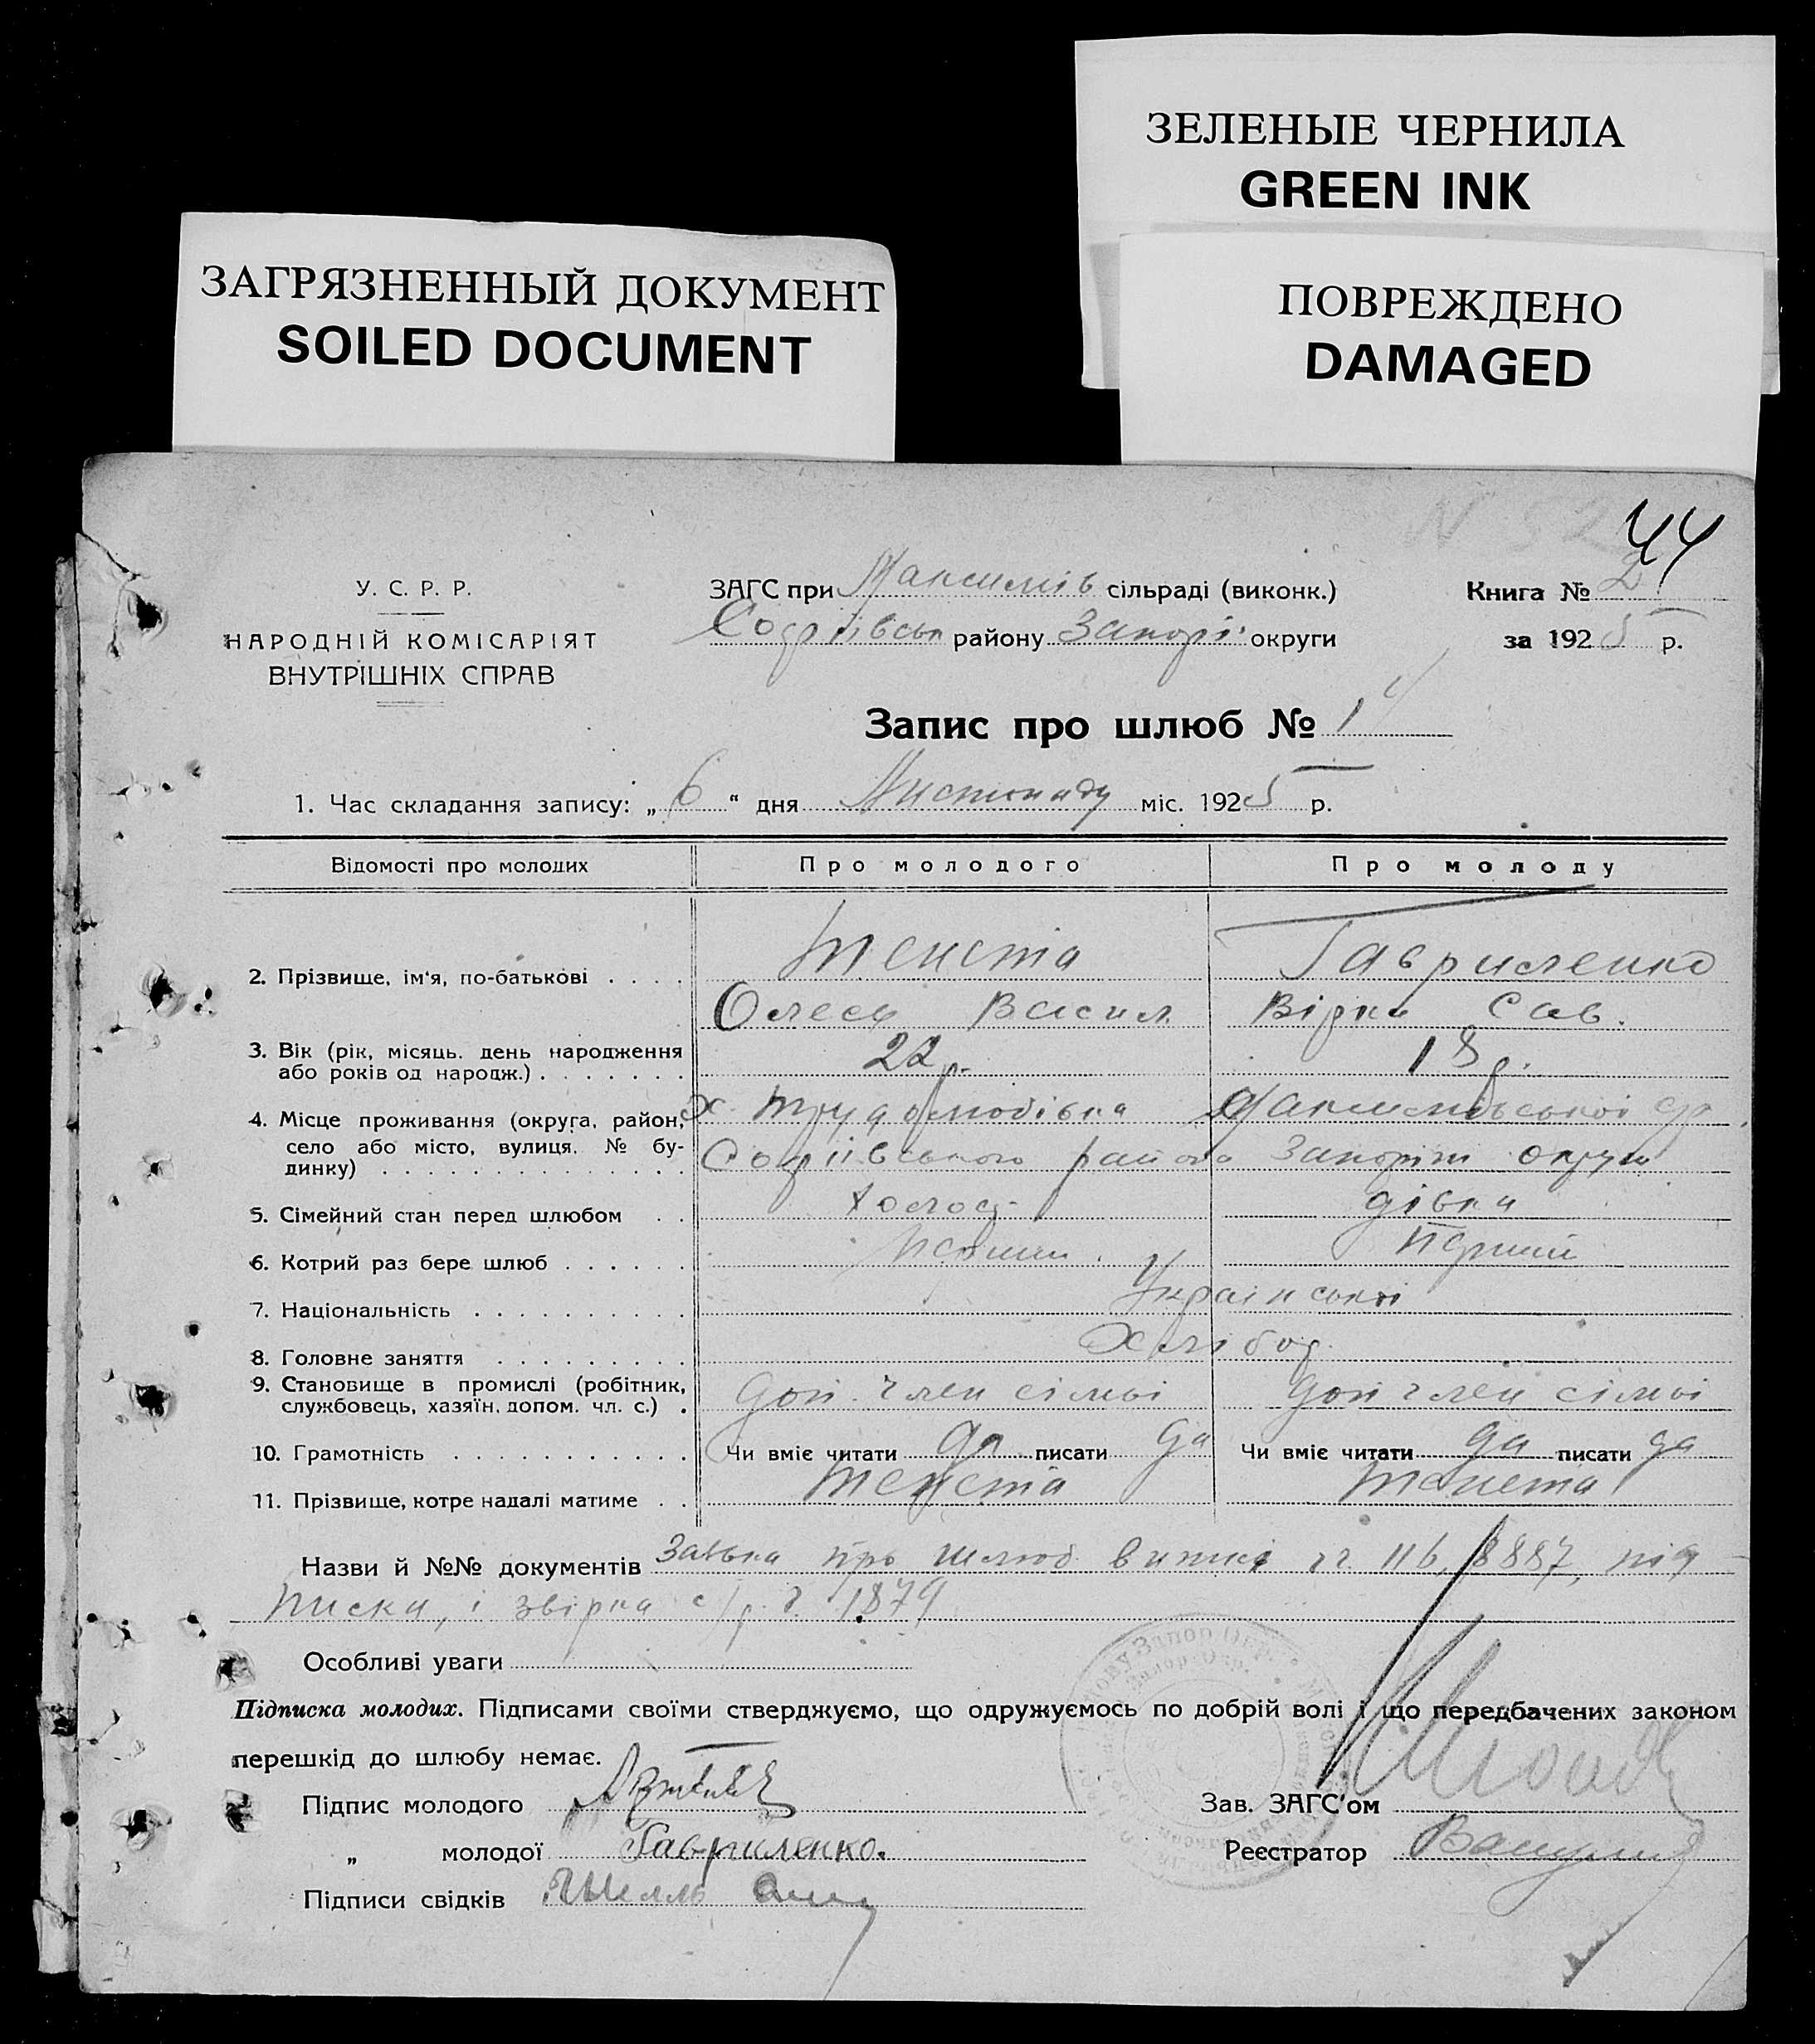 ЗЕЛЕНЫЕ ЧЕРНИЛА
GREEN INK
ЗАГРЯЗНЕННЫЙ ДОКУМЕНТ
SOILED DOCUMENT
ПОВРЕЖДЕНО
DAMAGED
N 52
44
У. С. Р. Р.
НАРОДНІЙ КОМІСАРІЯТ
ВНУТРІШНІХ СПРАВ
ЗАГС при Максимів сільраді (виконк.)
Софіївськ району Запоріз. округи
Книга № 2
за 1925 р.
Запис про шлюб № 14
1. Час складання запису: „6" дня Листопаду міс. 1925 р.
Відомості про молодих Про молодого Про молоду
2. Прізвище, ім'я, по-батькові . . . . Тенета Гавриленко
Олесь Васил. Вірка Сав.
3. Вік (рік, місяць, день народження 22 р. 18 р.
або років од народж.) . . . . . . .
4. Місце проживання (округа, район, х. Трудолюбівка Максимівської ср.
село або місто, вулиця, № бу- Софіївського району Запоріз округи
динку) . . . . . . . . . . . . . .
5. Сімейний стан перед шлюбом . . холост дівка
6. Котрий раз бере шлюб . . . . . . Перший Перший
7. Національність . . . . . . . . . . Української
8. Головне заняття . . . . . . . . . Хлібор.
9. Становище в промислі (робітник, доп член сімьі доп член сімьі
службовець, хазяїн, допом. чл. с.) .
10. Грамотність . . . . . . . . . . . Чи вміє читати да писати да Чи вміє читати да писати да
11. Прізвище, котре надалі матиме . . Тенета Тенета
Назви й №№ документів Заявка про шлюб виписі чч. 116, 8887, під-
писки, і звірка с/р. ч. 1879
Особливі уваги
Підписка молодих. Підписами своїми стверджуємо, що одружуємось по добрій волі і що передбачених законом
перешкід до шлюбу немає.
Підпис молодого
Зав. ЗАГС'ом
„ молодої Гавриленко.
Реєстратор
Підписи свідків